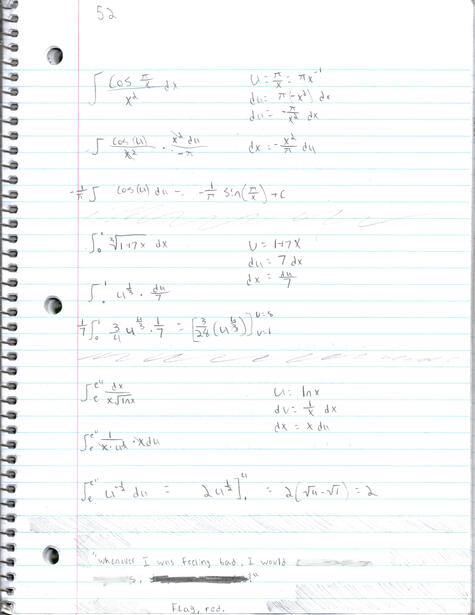 52
∫ cos π/x / x² dx    u = π/x = πx⁻¹
du = π(-x²) dx
du = -π/x² dx
∫ cos(u)/x² · x² du/-π    dx = -x²/π du
-1/π ∫ cos(u) du = -1/π sin(π/x) + c
∫₀¹ ∛1+7x dx    u = 1+7x
du = 7 dx
dx = du/7
∫₀¹ u^⅓ · du/7
1/7 ∫₀¹ 3/4 u^4/3 · 1/7 = [3/28 (u^4/3)] u=8 u=1
∫ₑ^e⁴ dx / x√lnx    u = lnx
du = 1/x dx
dx = x du
∫ₑ^e⁴ 1/x·u^½ · x du
∫ₑ^e⁴ u^-½ du = 2u^½]₁⁴ = 2(√4 - √1) = 2
"whenever I was feeling bad, I would
s,       !"
Flag, red.